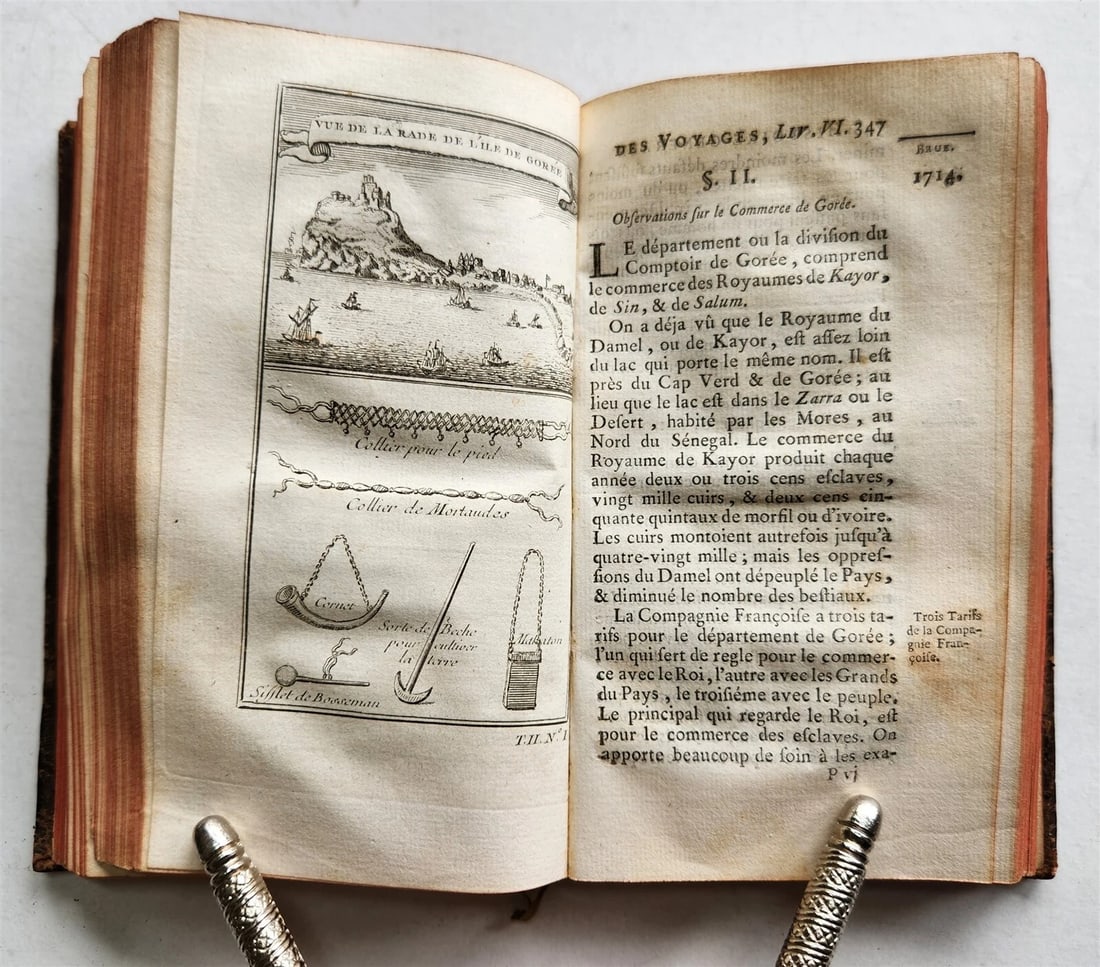 VUE DE LA RADE DE L'ILE DE GORÉE
Collier pour le pied
Collier de Mortaudes
Cornet
Sorte de Beche
pour cultiver
la terre
Makaton
Sifflet de Bosseman
T.II. N.º I
DES VOYAGES, LIV. VI. 347
BRUE.
1714.
§. II.
Obſervations ſur le Commerce de Gorée.
LE département ou la diviſion du
Comptoir de Gorée, comprend
le commerce des Royaumes de Kayor,
de Sin, & de Salum.
On a déja vû que le Royaume du
Damel, ou de Kayor, eſt aſſez loin
du lac qui porte le même nom. Il eſt
près du Cap Verd & de Gorée; au
lieu que le lac eſt dans le Zarra ou le
Deſert, habité par les Mores, au
Nord du Sénegal. Le commerce du
Royaume de Kayor produit chaque
année deux ou trois cens eſclaves,
vingt mille cuirs, & deux cens cin-
quante quintaux de morfil ou d'ivoire.
Les cuirs montoient autrefois juſqu'à
quatre-vingt mille; mais les oppreſ-
ſions du Damel ont dépeuplé le Pays,
& diminué le nombre des beſtiaux.
La Compagnie Françoiſe a trois ta-
rifs pour le département de Gorée;
l'un qui ſert de regle pour le commer-
ce avec le Roi, l'autre avec les Grands
du Pays, le troiſiéme avec le peuple.
Le principal qui regarde le Roi, eſt
pour le commerce des eſclaves. On
apporte beaucoup de ſoin à les exa-
P vj
Trois Tarifs
de la Compa-
gnie Fran-
çoiſe.